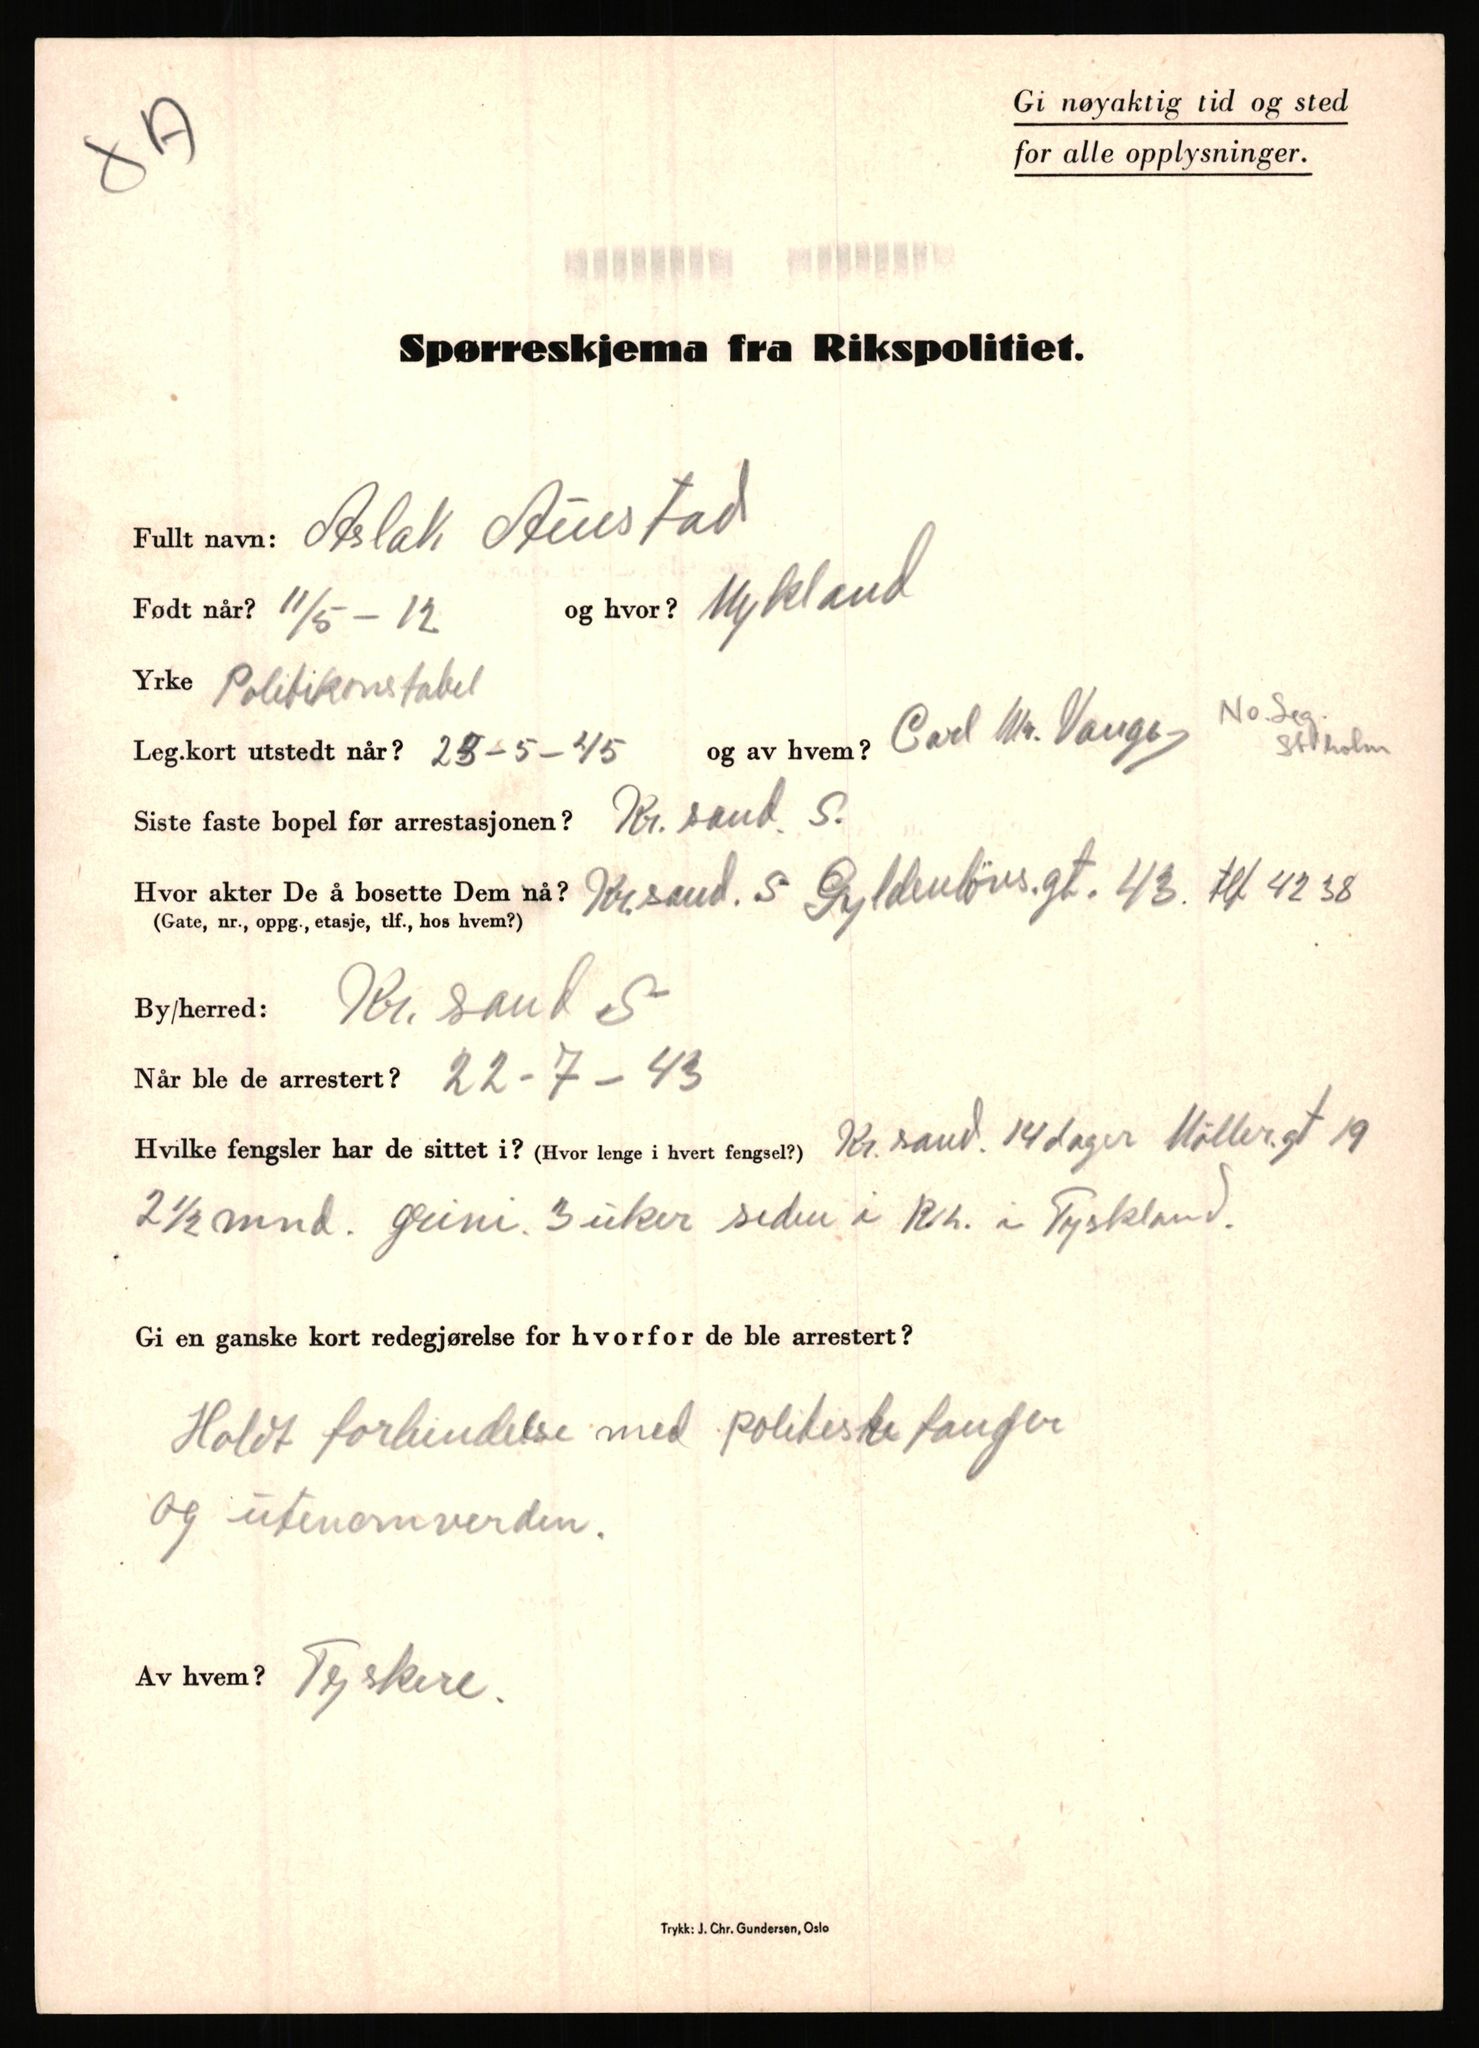 Gi nøyaktig tid og sted
for alle opplysninger.
Spørreskjema fra Rikspolitiet.
Fullt navn: Aslak Austad
Født når? 11/5 - 12 og hvor? Mykland
Yrke Politikonstabel
No. Leg.
Leg.kort utstedt når? 23-5-45 og av hvem? Carl Mr. Vange St.holm
Siste faste bopel før arrestasjonen? Kr. sand. S.
Hvor akter De å bosette Dem nå? Kr.sand. S Gyldenlövs.gt. 43. tlf 42 38
(Gate, nr., oppg., etasje, tlf., hos hvem?)
By/herred: Kr. sand S
Når ble de arrestert? 22-7-43
Hvilke fengsler har de sittet i? (Hvor lenge i hvert fengsel?) Kr. sand. 14 dager Möller.gt 19
2 1/2 mnd. Grini. 3 uker siden i i Tyskland.
Gi en ganske kort redegjørelse for hvorfor de ble arrestert?
Holdt forbindelse med politiske fanger
og utenomverden.
Av hvem? Tyskere.
Trykk: J. Chr. Gundersen, Oslo